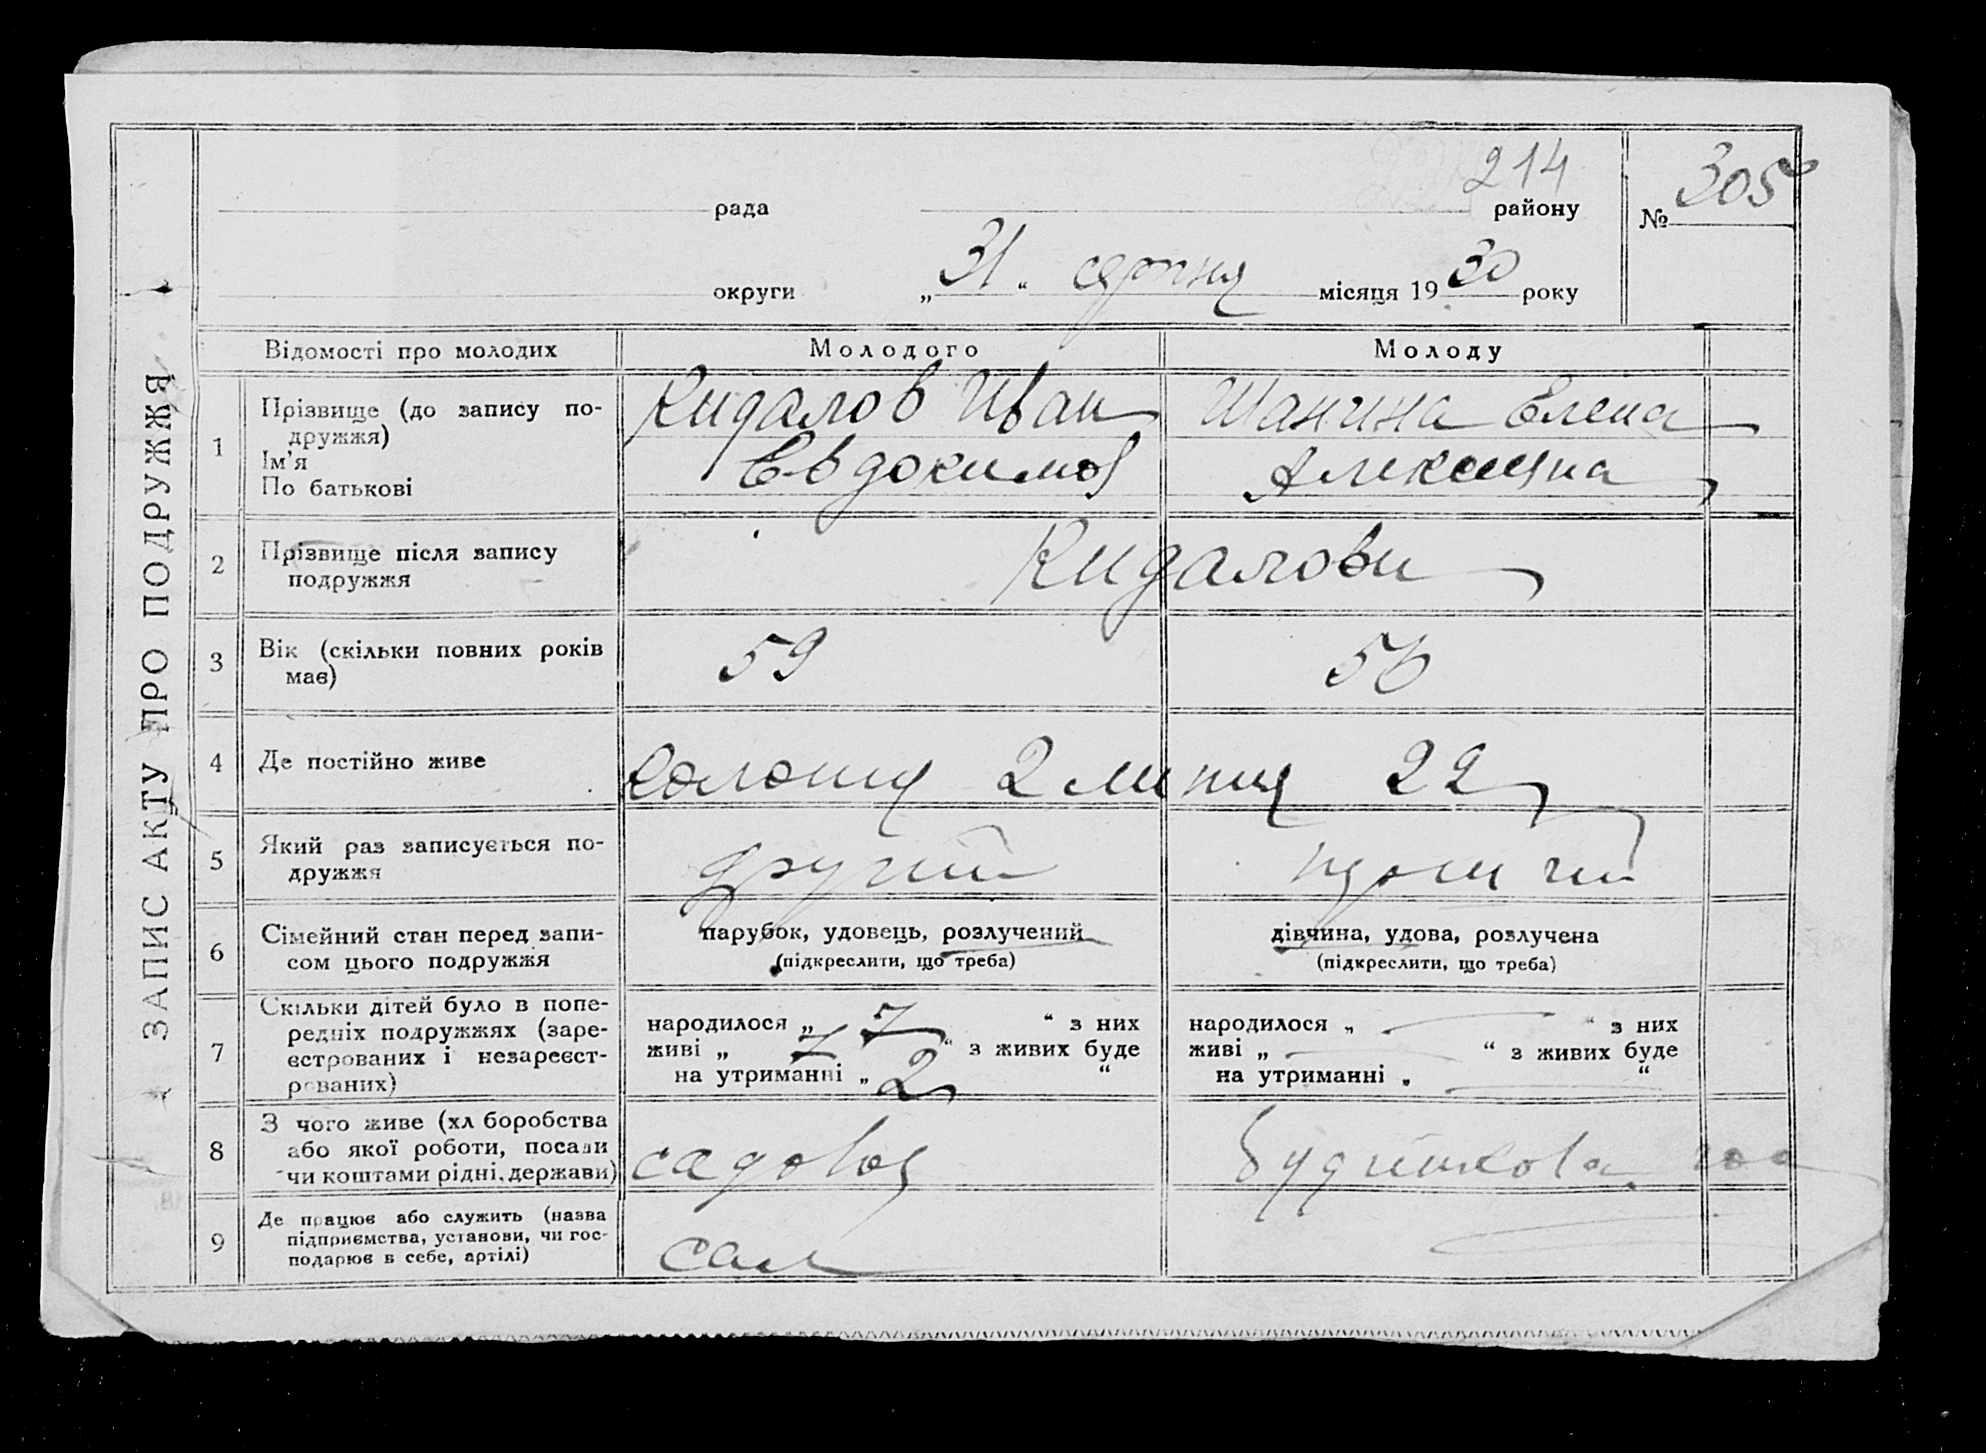 ЗАПИС АКТУ ПРО ПОДРУЖЖЯ
214
рада району
№ 305
округи „31“ серпня місяця 1930 року
Відомості про молодих Молодого Молоду
1 Прізвище (до запису по-
дружжя)
Ім'я
По батькові
Кидалов Иван
Евдокимов
Шанина Елена
Алексеевна
2 Прізвище після запису
подружжя
Кидалови
3 Вік (скільки повних років
має)
59 56
4 Де постійно живе
2 линия 22
5 Який раз записується по-
дружжя
другий
6 Сімейний стан перед запи-
сом цього подружжя
парубок, удовець, розлучений
(підкреслити, що треба)
дівчина, удова, розлучена
(підкреслити, що треба)
7 Скільки дітей було в попе-
редніх подружжях (заре-
єстрованих і незареєст-
рованих)
народилося „ 7 “ з них
живі „ 7 “ з живих буде
на утриманні „ 2 “
народилося „ — “ з них
живі „ — “ з живих буде
на утриманні „ — “
8 З чого живе (хліборобства
або якої роботи, посади
чи коштами рідні, держави)
садовод
9 Де працює або служить (назва
підприємства, установи, чи гос-
подарює в себе, артілі)
сам